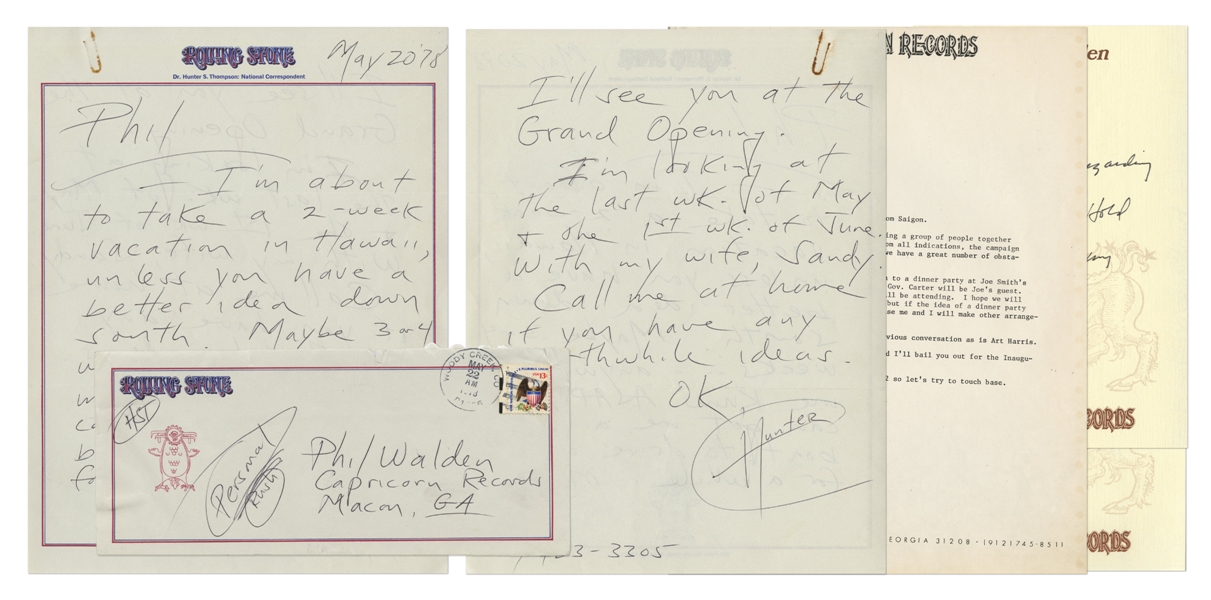 ROLLING STONE
May 20 '78
Dr. Hunter S. Thompson: National Correspondent
Phil
— I'm about
to take a 2-week
vacation in Hawaii,
unless you have a
better idea down
south. Maybe 3 or 4
I'll see you at the
Grand Opening.
I'm looking at
the last wk. of May
+ the 1st wk. of June.
With my wife, Sandy.
Call me at home
if you have any
thwhile ideas.
OK
Hunter
23-3305
ROLLING STONE
HST
Personal
Rush
Phil Walden
Capricorn Records
Macon, GA
WOODY CREEK CO
MAY
22
AM
13c
N RECORDS
om Saigon.
ing a group of people together
om all indications, the campaign
we have a great number of obsta-
n to a dinner party at Joe Smith's
Gov. Carter will be Joe's guest.
ll be attending. I hope we will
but if the idea of a dinner party
se me and I will make other arrange-
vious conversation as is Art Harris.
d I'll bail you out for the Inaugu-
2 so let's try to touch base.
EORGIA 31208 · (912) 745-8511
den
garding
Hold
ORDS
ORDS